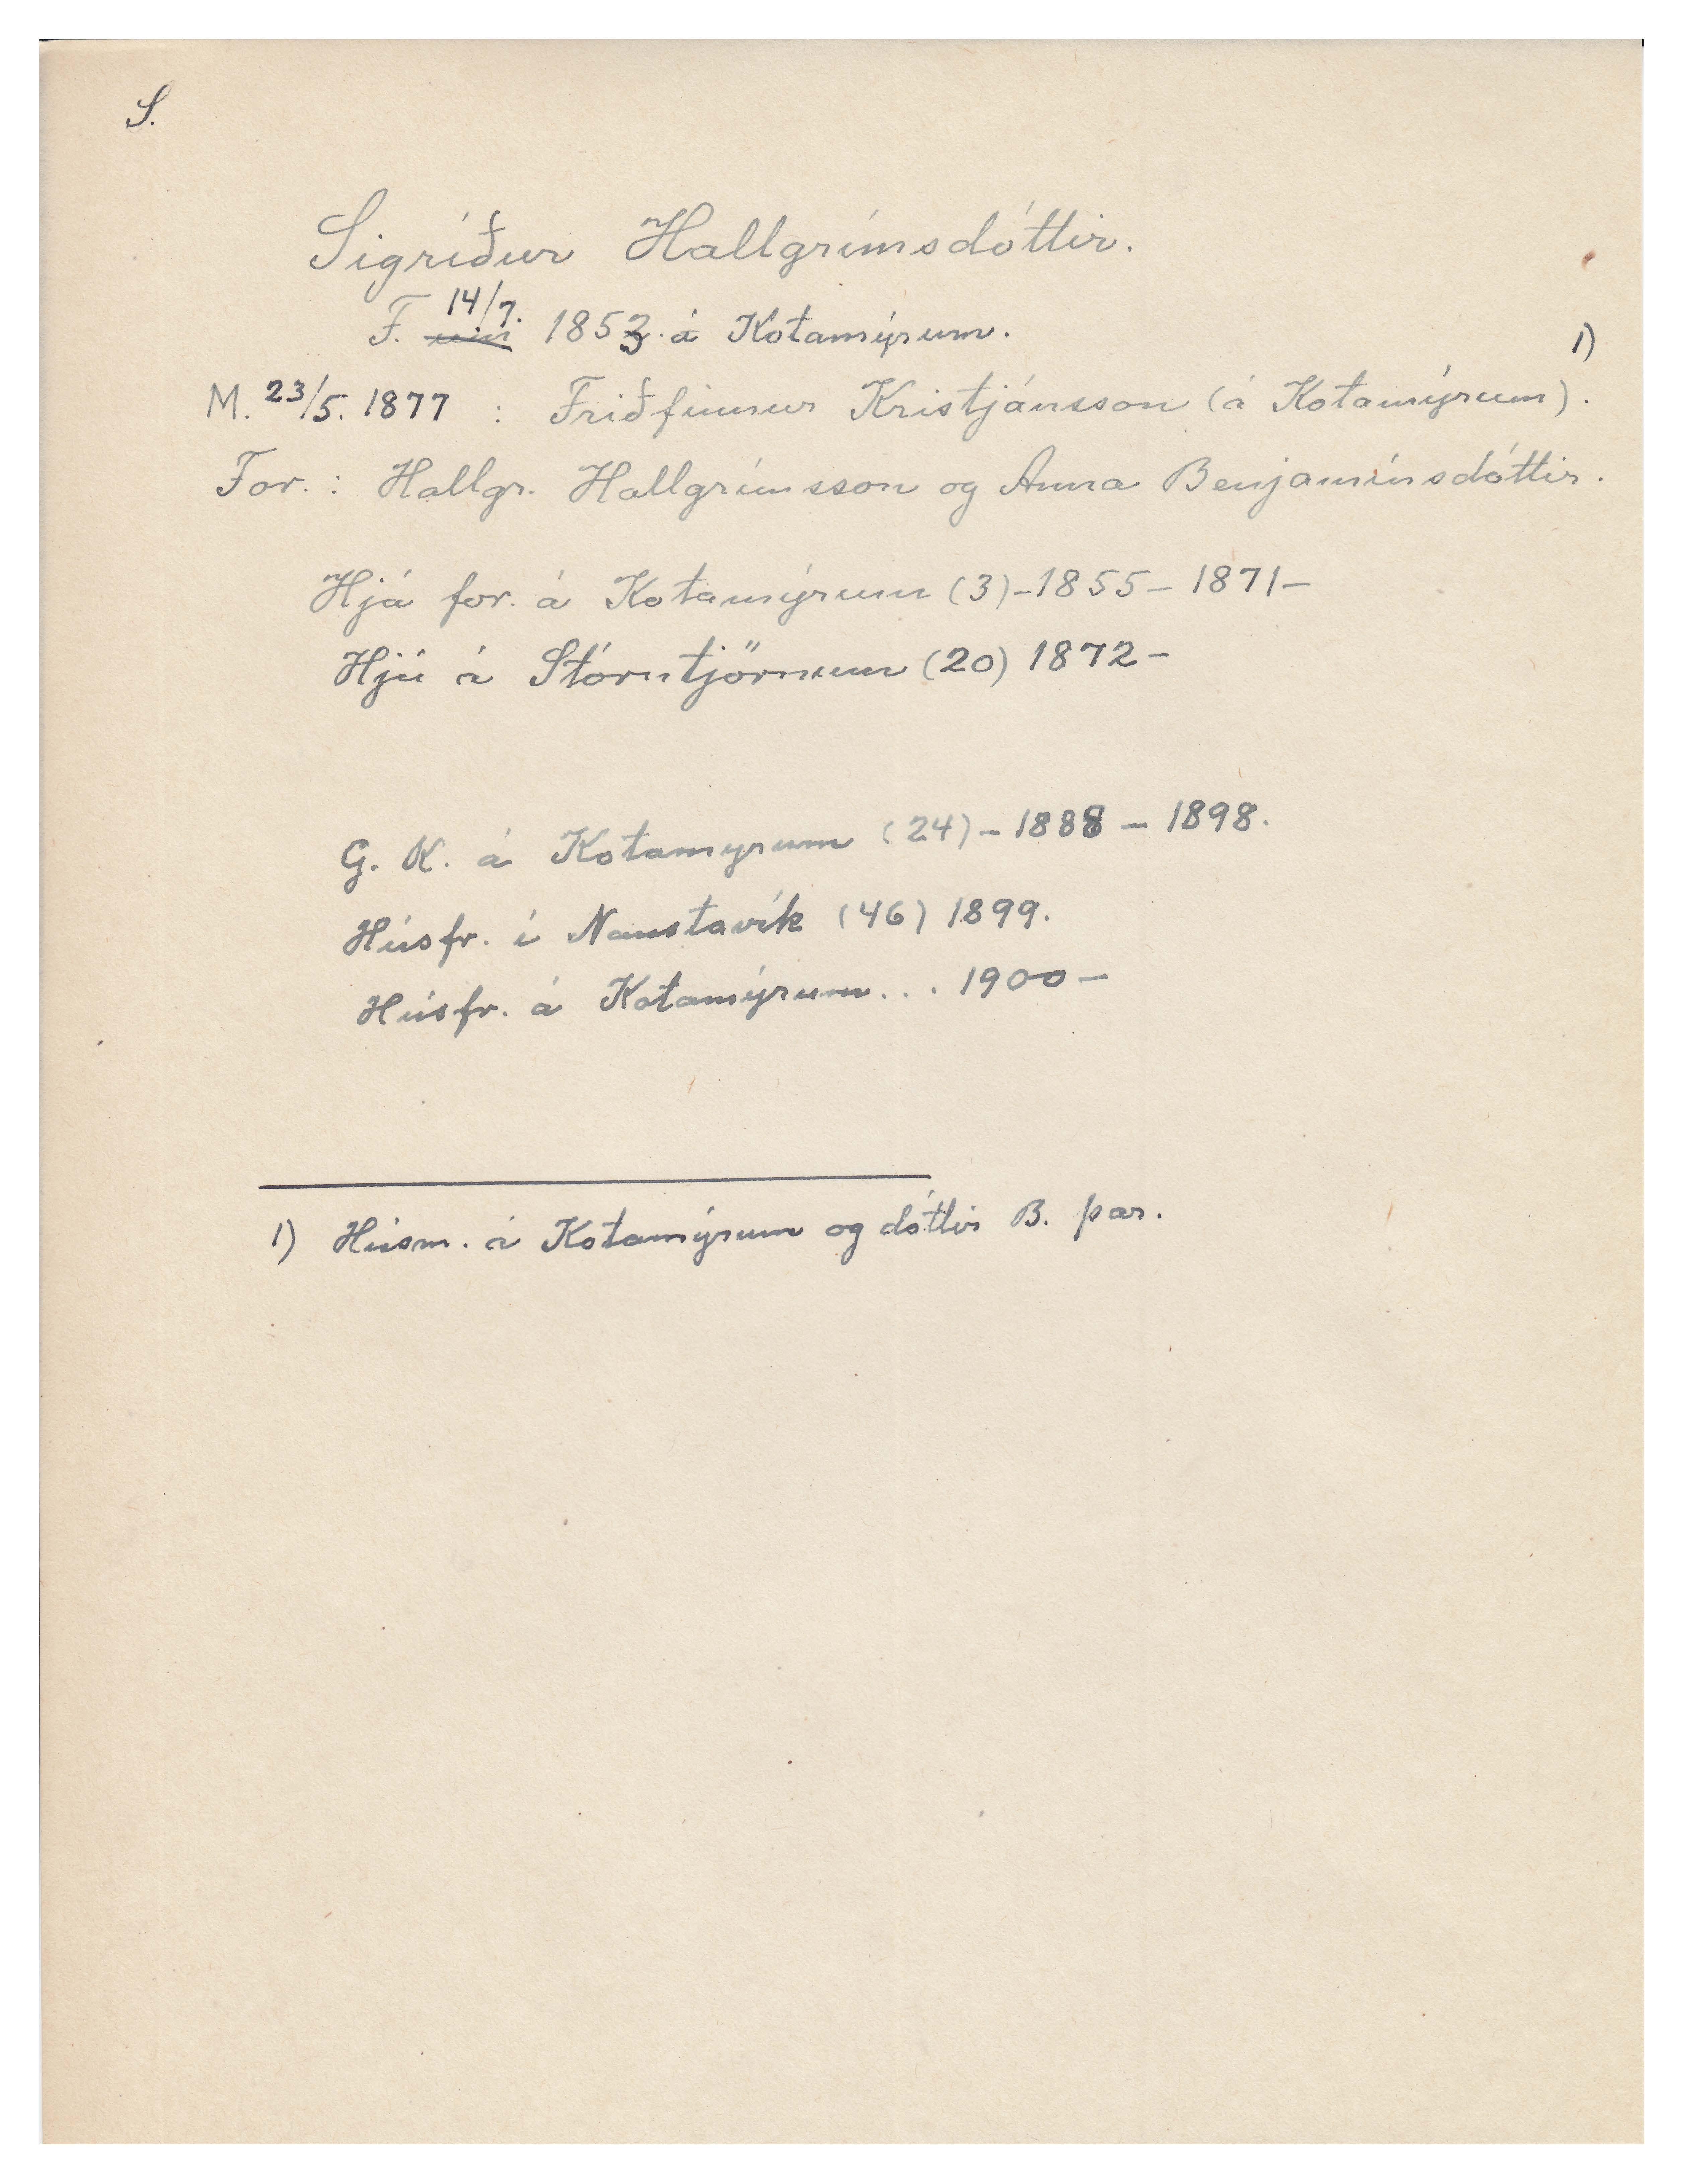 S.
Sigríður Hallgrímsdóttir.
F. 14/7. 1853. á Kotamýrum.
M. 23/5. 1877 : Friðfinnur Kristjánsson (á Kotamýrum). 1)
For.: Hallgr. Hallgrímsson og Anna Benjamínsdóttir.
Hjá for. á Kotamýrum (3)-1855-1871-
Hjú á Stórutjörnum (20) 1872-
G. K. á Kotamyrum (24)-1888-1898.
Húsfr. í Naustavík (46) 1899.
Húsfr. á Kotamýrum... 1900-
1) Húsm. á Kotamýrum og dóttir B. þar.